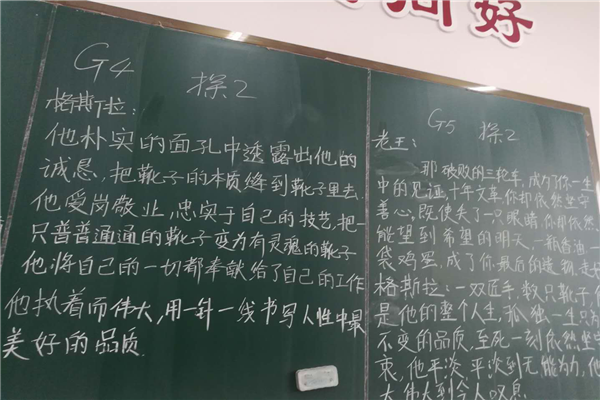 好
G4 探2
格斯拉:
他朴实的面孔中透露出他的
诚恳,把靴子的本质缝到靴子里去
他爱岗敬业,忠实于自己的技艺,把一
只普普通通的靴子变为有灵魂的靴子
他将自己的一切都奉献给了自己的工作
他执着而伟大,用一针一线书写人性中最
美好的品质.
G5 探2
老王:
那破败的三轮车,成为了你一生
中的见证,十年文革,你却依然坚守
善心,既使失了一只眼睛,你却依然
能望到希望的明天,一瓶香油一
袋鸡蛋,成了你最后的遗物,
格斯拉:一双匠手,数只靴子,
是他的整个人生,孤独一生只为
不变的品质,至死一刻依然坚守
衷,他平淡,平淡到无能为力,他
大,伟大到令人叹息.